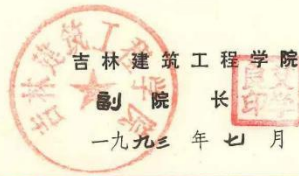 吉林建筑工程学院
副院长
一九九三年七月
吉林建筑工程学院